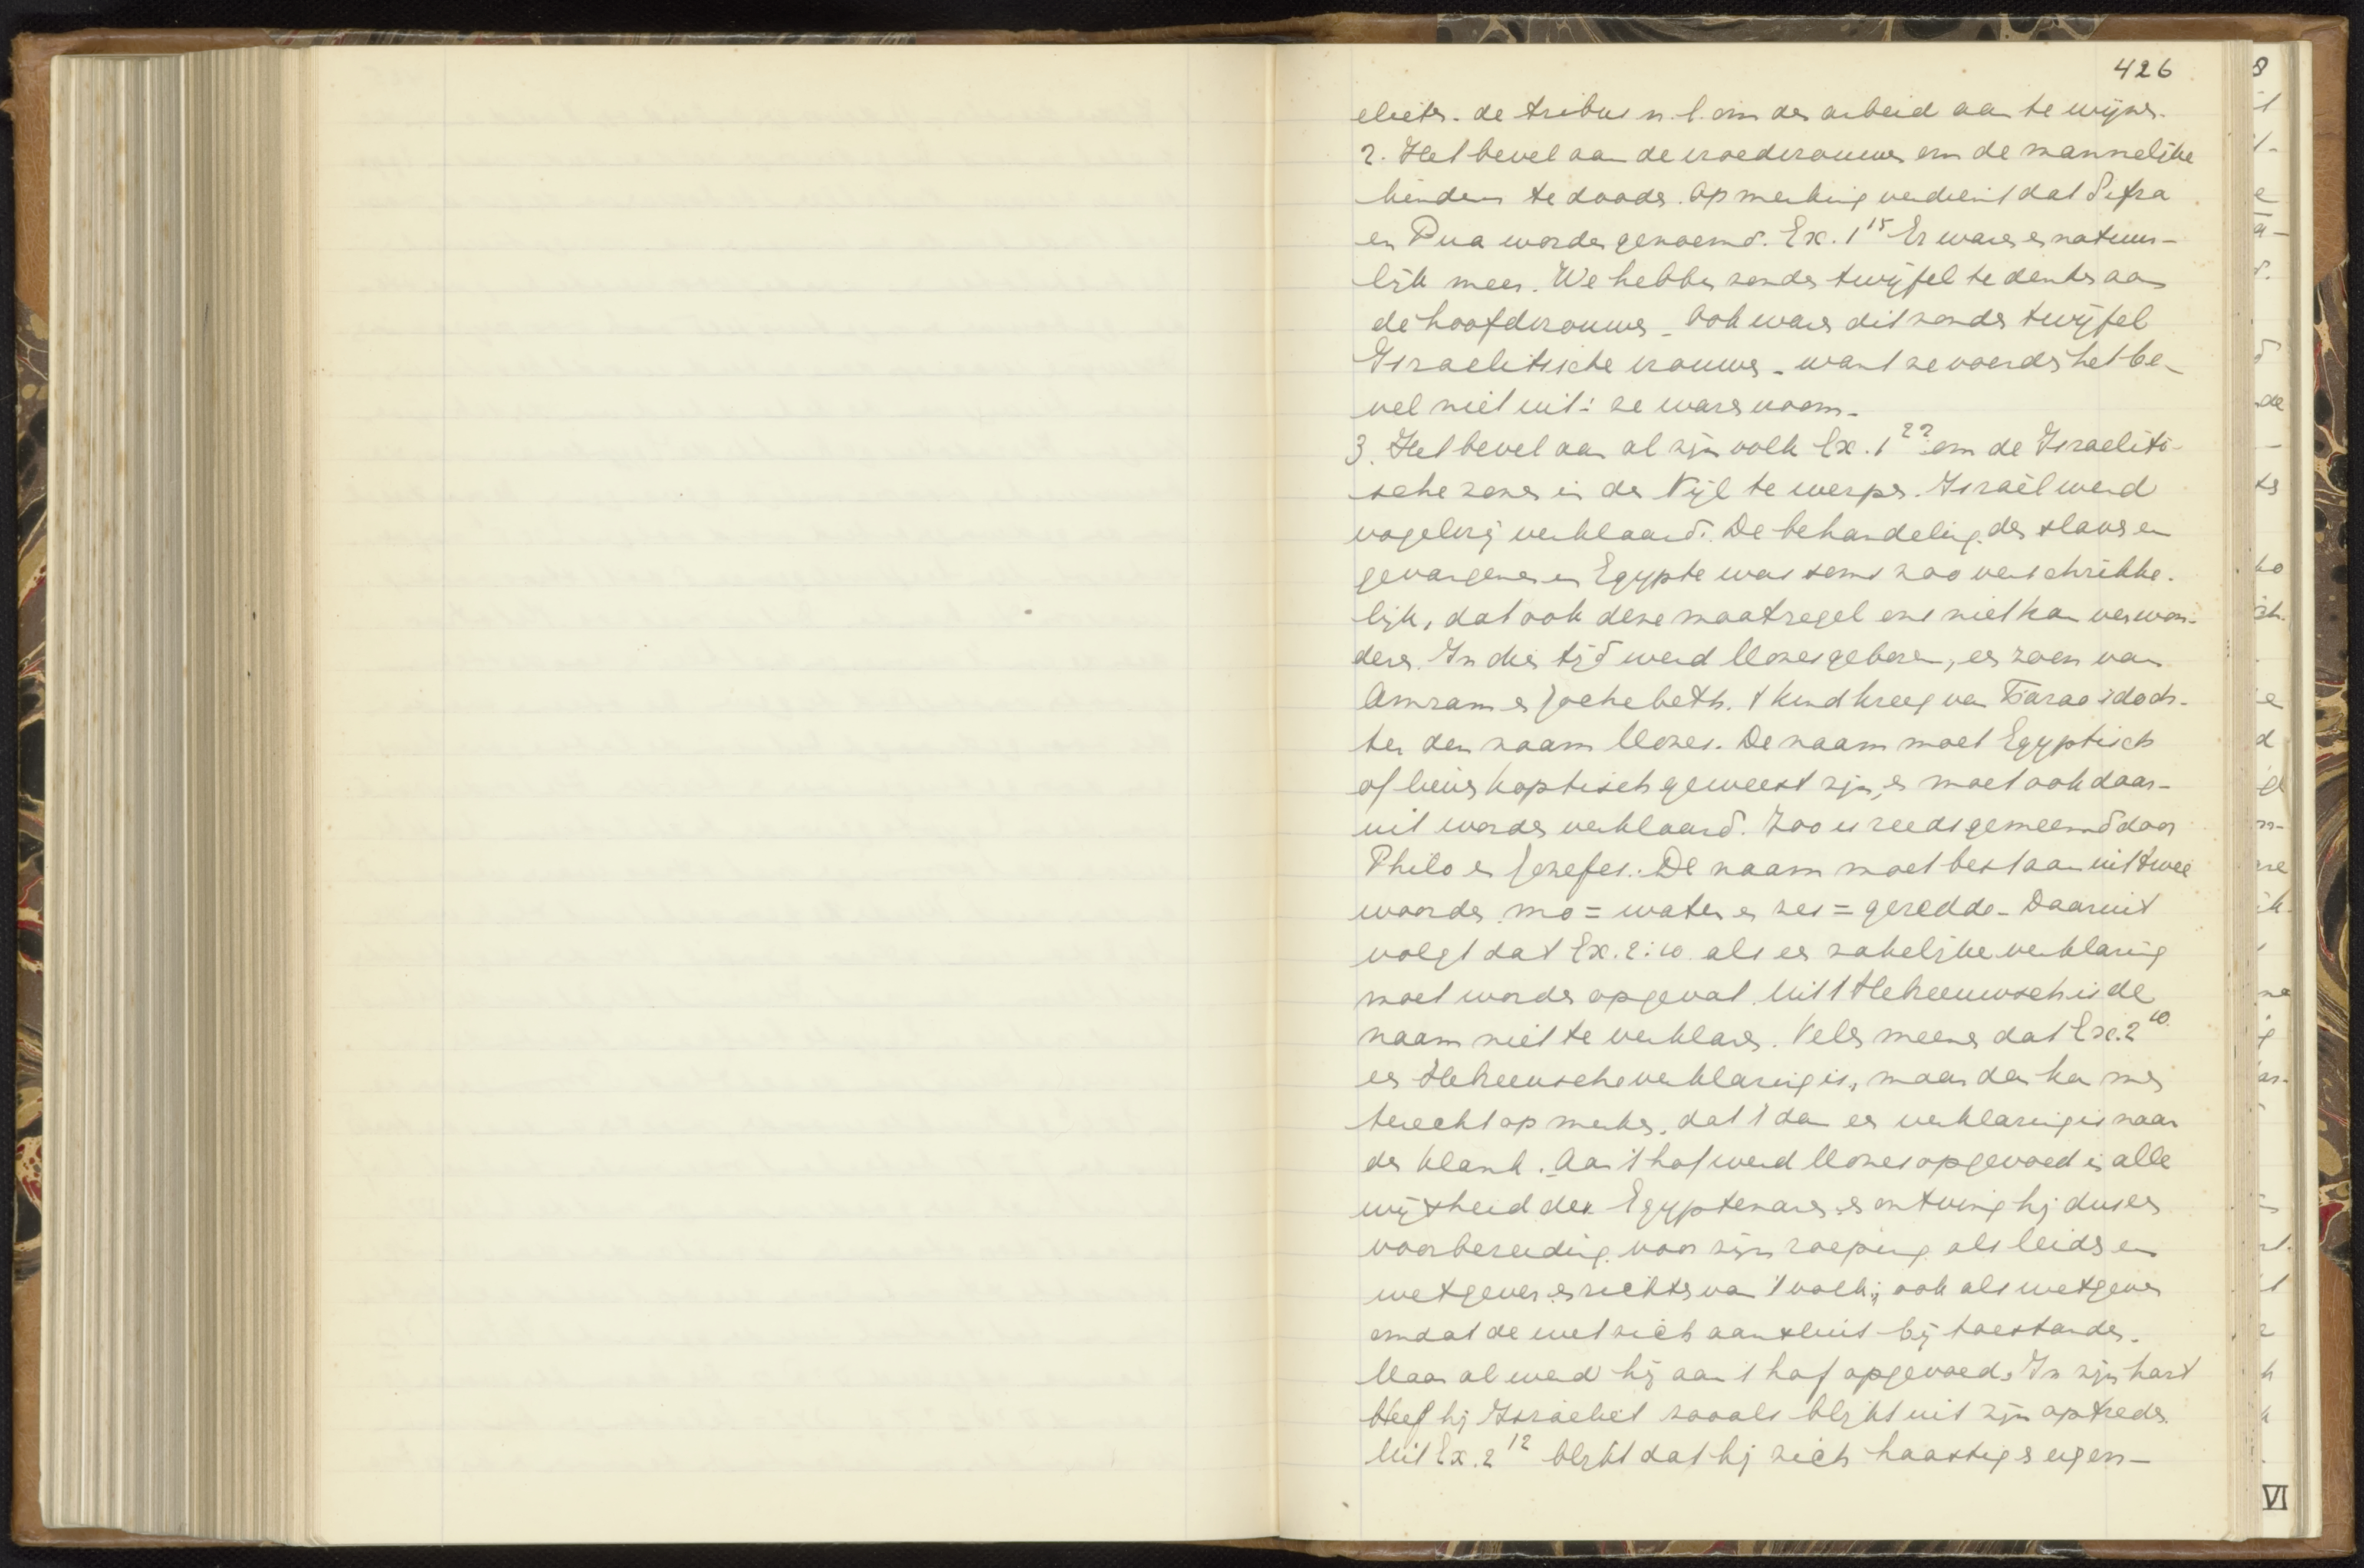 426
elieten. de tribus n.l. om den arbeid aan te wijzen.
2. Het bevel aan de vroedvrouwen om de mannelijke
kinderen te dooden. Opmerking verdient dat Sifra
en Pua worden genoemd. Ex. 1¹⁵ Er waren er natuur-
lijk meer. We hebben zonder twijfel te denken aan
de hoofdvrouwen. Ook waren dit zonder twijfel
Israelitische vrouwen. want ze voerden het be-
vel niet uit: ze waren vroom.
3. Het bevel aan al zijn volk Ex. 1²² om de Israeliti-
sche zonen in den Nijl te werpen. Israël werd
vogelvrij verklaard. De behandeling der slaven en
gevangenen in Egypte was soms zoo verschrikke-
lijk, dat ook deze maatregel ons niet kan verwon-
deren. In dien tijd werd Mozes geboren, een zoon van
Amram en Jochebeth. 't kind kreeg van Farao's doch-
ter den naam Mozes. De naam moet Egyptisch
of liever koptisch geweest zijn, en moet ook daar-
uit worden verklaard. Zoo is reeds gemeend door
Philo en Jozefus. De naam moet bestaan uit twee
woorden mo = water en zes = geredde. Daaruit
volgt dat Ex. 2:10 als een zakelijke verklaring
moet worden opgevat. Uit 't Hebreeuwsch is de
naam niet te verklaren. Velen meenen dat Ex. 2¹⁰
een Hebreeuwsche verklaring is, maar dan kan men
terecht opmerken, dat 't dan een verklaring is naar
den klank. Aan 't hof werd Mozes opgevoed in alle
wijsheid der Egyptenaren en ontving hij dus een
voorbereiding voor zijn roeping als leider en
wetgever en richter van 't volk; ook als wetgever
omdat de wet zich aansluit bij toestanden.
Maar al werd hij aan 't hof opgevoed, In zijn hart
bleef hij Israeliet zooals blijkt uit zijn optreden.
Uit Ex. 2¹² blijkt dat hij zich haastig en eigen-
VI